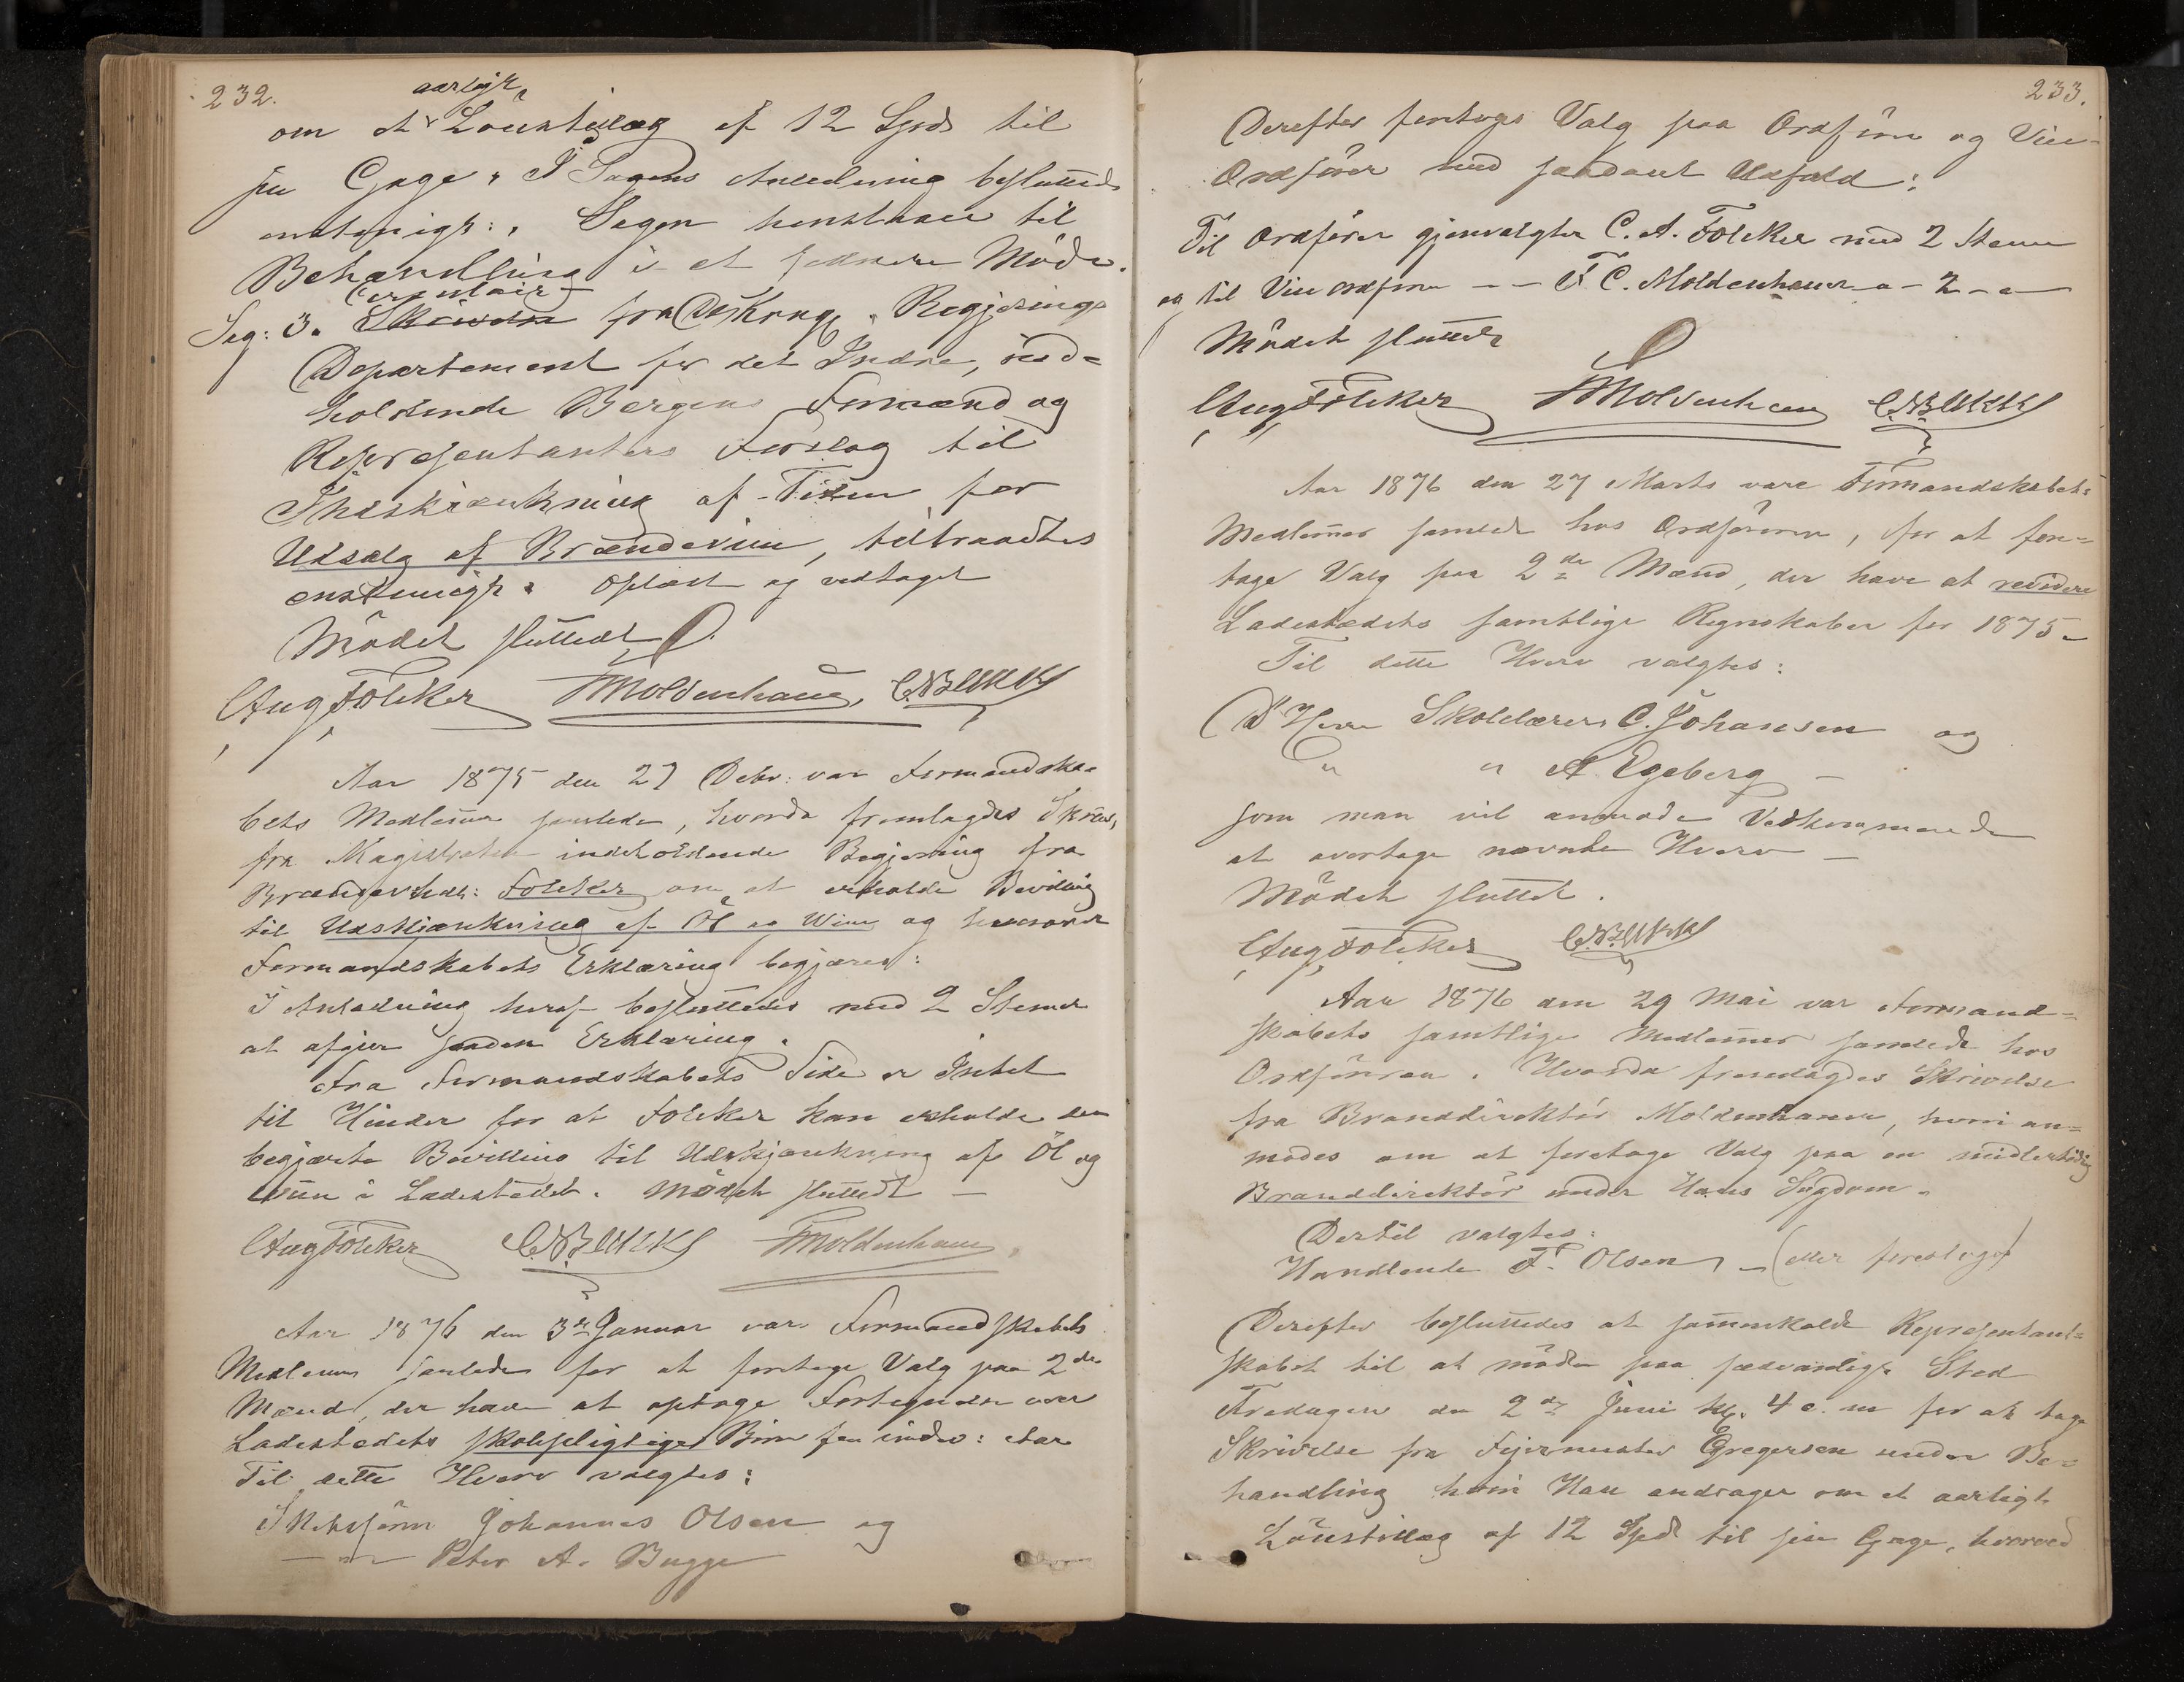 232.
aarligt
om et Lönstillæg af 12 Spd til
sin Gage. I Sagens Anledning besluttedes
enstemigt: Sagen henstaaer til
Behandling i et senere Möde.
Circulair
Sag: 3. Skrivelse fra Den Kongl. Regjerings
Departement for det Indre, inde=
holdende Bergens Formænd og
Repræsentanters Forslag til
Indskrænkning af Tiden for
Udsalg af Brændeviin, tiltraadtes
enstemigt. Oplæst og vedtaget
Mödet sluttedt
Aug Fölcker Moldenhauer,
Aar 1875 den 27 Debr: var Formandska=
bets Medlemer samlede, hvorda fremlagdes Skriv,
fra Magistraten indeholdende Begjering fra
Fölcker om at erholde Bevilling
til Udskjænkning af Öl og Viin og
Formandskabets Erklæring begjæres:
I Anledning heraf besluttedes med 2 Stemer
at afgive saadan Erklæring.
Fra Formandskabets Side er Intet
til Hinder for at Fölcker kan erholde den
begjærte Bevilling til Udskjænkning af Öl og
Viin i Ladestedet. Mödet sluttedt —
Aug Fölcker Moldenhauer,
Aar 1876 den 3de Januar var Formandskabets
Medlemer samlede for at foretage Valg paa 2de
Mænd, der have at optage Fortegnelse over
Ladestedets skolepligtige Börn for indev: Aar
Til dette Hverv valgtes:
Skibsförer Johannes Olsen og
— " — Peter A. Bugge
233.
Derefter foretoges Valg paa Ordförer og Vice-
Ordförer med saadant Udfald:
Til Ordförer gjenvalgtes C. A. Fölcker med 2 Stemer
og til Viceordförer — — F. C. Moldenhauer — " — 2 — " —
Mödet sluttedt
Aug Fölcker Moldenhauer
Aar 1876 den 27 Marts vare Formandskabets
Medlemer samlede hos Ordföreren, for at fore=
tage Valg paa 2de Mænd, der have at revidere
Ladestedets samtlige Regnskaber for 1875 —
Til dette Hverv valgtes:
D'Herrer Skolelærer C. Johansen og
" " A. Egeberg —
som man vil anmode Vedkommende
at overtage nævnte Hverv —
Mödet sluttet.
Aug Fölcker
Aar 1876 den 29 Mai var Formand=
skabets samtlige Medlemer samlede hos
Ordföreren. Hvorda fremlagdes Skrivelse
fra Branddirektör Moldenhauer, hvori an=
modes om at foretage Valg paa en midlertidig
Branddirektör under Hans Sygdom.
Dertil valgtes:
Handlende F. Olsen, — (eller foresloges)
Derefter besluttedes at sammenkalde Repræsentant=
skabet til at möde paa sædvanligt Sted
Fredagen den 2den Juni kl. 4 e. m for at tage
Skrivelse fra Feiermester Gregersen under Be=
handling hvori Han andrager om et aarligt
Lönstillæg af 12 Spd til sin Gage, hvorved